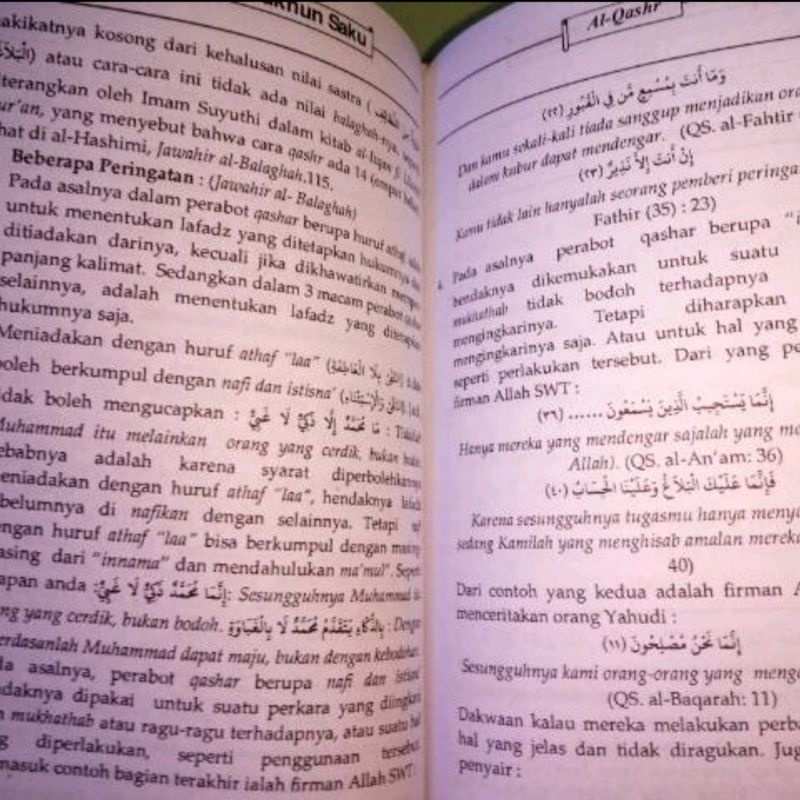 Saku
akikatnya kosong dari kehalusan nilai sastra (
atau cara-cara ini tidak ada nilai balaghah-nya,
terangkan oleh Imam Suyuthi dalam kitab al-Itqan fi
ur'an, yang menyebut bahwa cara qashr ada 14 (empat
hat di al-Hashimi, Jawahir al-Balaghah.115.
Beberapa Peringatan : (Jawahir al- Balaghah)
Pada asalnya dalam perabot qashar berupa huruf athaf
untuk menentukan lafadz yang ditetapkan hukumnya
ditiadakan darinya, kecuali jika dikhawatirkan
panjang kalimat. Sedangkan dalam 3 macam perabot
selainnya, adalah menentukan lafadz yang
hukumnya saja.
Meniadakan dengan huruf athaf "laa"
boleh berkumpul dengan nafi dan istisna'
idak boleh mengucapkan : مَا مُحَمَّدٌ إِلَّا ذَكِيٌّ لَا غَبِيٌّ :
Muhammad itu melainkan orang yang cerdik, bukan
ebabnya adalah karena syarat diperbolehkannya
eniadakan dengan huruf athaf "laa", hendaknya
belumnya di nafikan dengan selainnya. Tetapi
engan huruf athaf "laa" bisa berkumpul dengan
asing dari "innama" dan mendahulukan ma'mul".
apan anda إِنَّمَا مُحَمَّدٌ ذَكِيٌّ لَا غَبِيٌّ: Sesungguhnya Muhammad
ng yang cerdik, bukan bodoh. بِالذَّكَاءِ يَتَقَدَّمُ مُحَمَّدٌ لَا بِالْغَبَاوَةِ :
erdasanlah Muhammad dapat maju, bukan dengan kebodohan.
da asalnya, perabot qashar berupa nafi dan
ndaknya dipakai untuk suatu perkara yang diingkari
h mukhathab atau ragu-ragu terhadapnya, atau suatu hal
g diperlakukan, seperti penggunaan tersebut.
masuk contoh bagian terakhir ialah firman Allah SWT :
Al-Qashr
وَمَا أَنْتَ بِمُسْمِعٍ مَّنْ فِي الْقُبُورِ (٢٢)
Dan kamu sekali-kali tiada sanggup menjadikan
dalam kubur dapat mendengar. (QS. al-Fahtir
إِنْ أَنْتَ إِلَّا نَذِيرٌ (٢٣)
Kamu tidak lain hanyalah seorang pemberi
Fathir (35) : 23)
Pada asalnya perabot qashar berupa
hendaknya dikemukakan untuk suatu
mukhathab tidak bodoh terhadapnya
mengingkarinya. Tetapi diharapkan
mengingkarinya saja. Atau untuk hal yang
seperti perlakukan tersebut. Dari yang
firman Allah SWT :
إِنَّمَا يَسْتَجِيبُ الَّذِينَ يَسْمَعُونَ ...... (٣٦)
Hanya mereka yang mendengar sajalah yang
Allah). (QS. al-An'am: 36)
فَإِنَّمَا عَلَيْكَ الْبَلَاغُ وَعَلَيْنَا الْحِسَابُ (٤٠)
Karena sesungguhnya tugasmu hanya
sedang Kamilah yang menghisab amalan mereka
40)
Dari contoh yang kedua adalah firman
menceritakan orang Yahudi :
إِنَّمَا نَحْنُ مُصْلِحُونَ (١١)
Sesungguhnya kami orang-orang yang
(QS. al-Baqarah: 11)
Dakwaan kalau mereka melakukan
hal yang jelas dan tidak diragukan.
penyair :